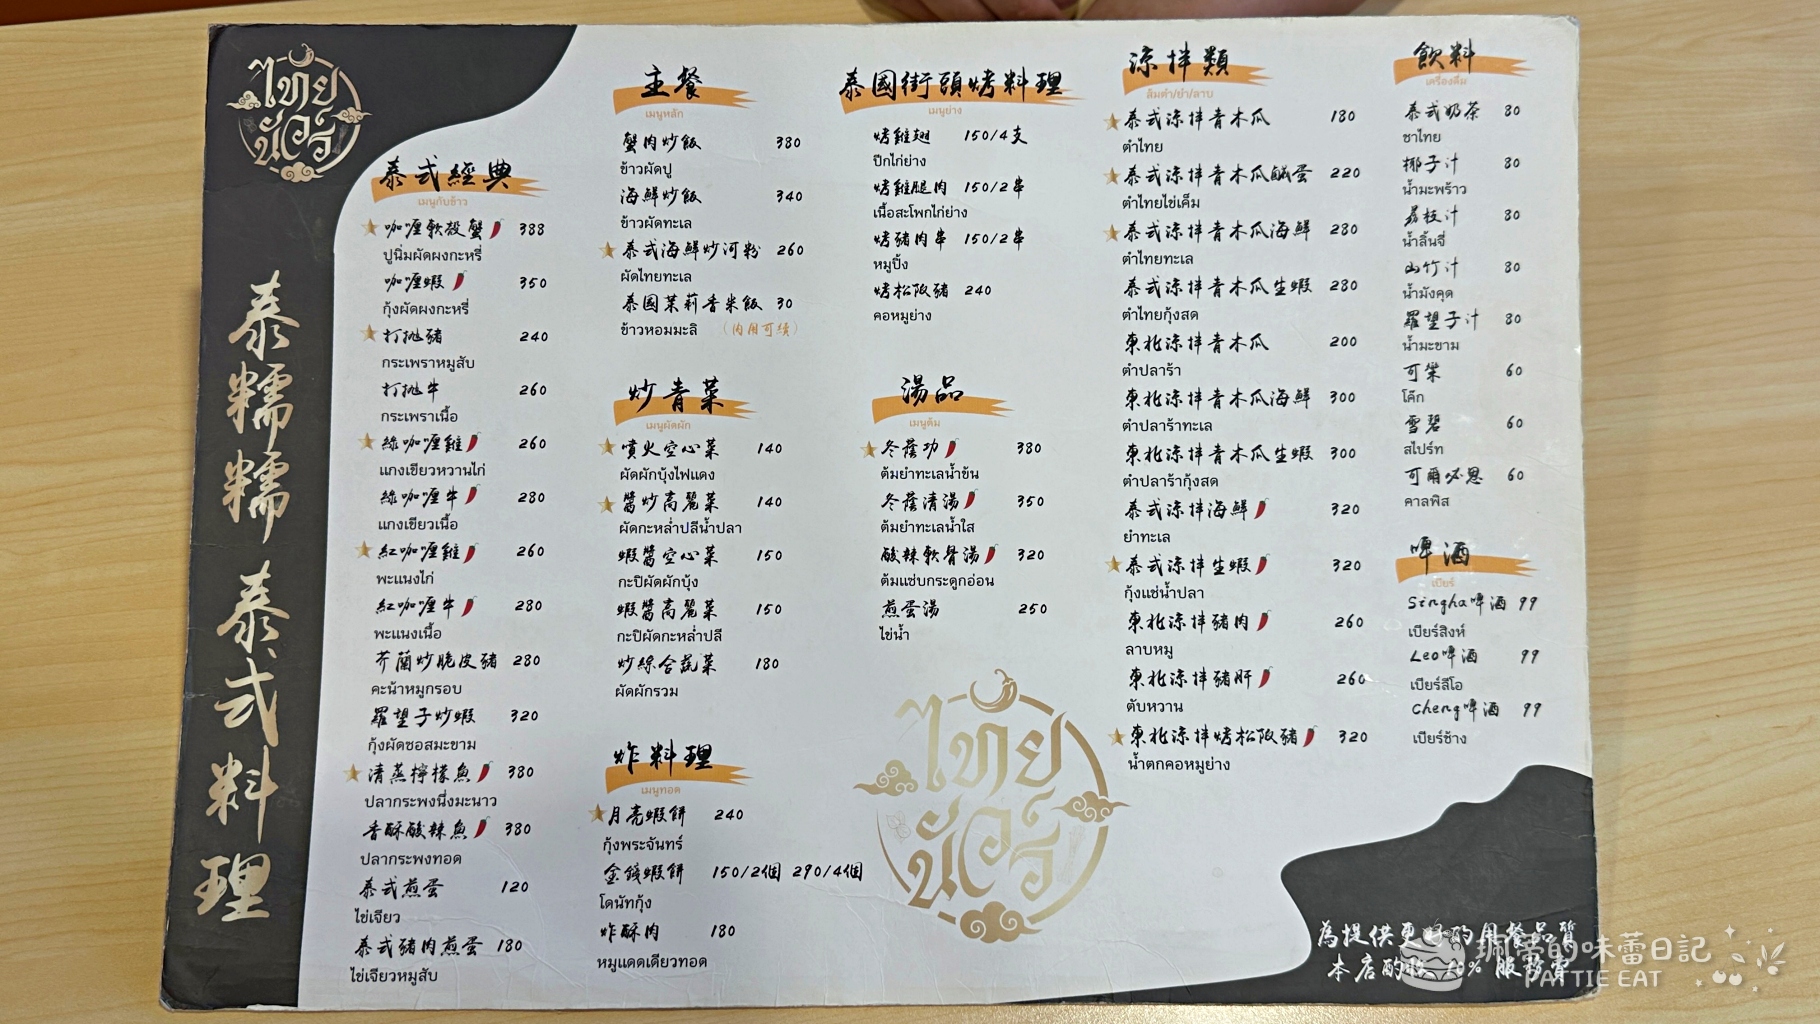 ไทย
นัวร์
泰糯糯 泰式料理
泰式經典
เมนูกับข้าว
咖喱軟殼蟹 388
ปูนิ่มผัดผงกะหรี่
咖喱蝦 350
กุ้งผัดผงกะหรี่
打拋豬 240
กระเพราหมูสับ
打拋牛 260
กระเพราเนื้อ
綠咖喱雞 260
แกงเขียวหวานไก่
綠咖喱牛 280
แกงเขียวเนื้อ
紅咖喱雞 260
พะแนงไก่
紅咖喱牛 280
พะแนงเนื้อ
芥蘭炒脆皮豬 280
คะน้าหมูกรอบ
羅望子炒蝦 320
กุ้งผัดซอสมะขาม
清蒸檸檬魚 380
ปลากระพงนึ่งมะนาว
香酥酸辣魚 380
ปลากระพงทอด
泰式煎蛋 120
ไข่เจียว
泰式豬肉煎蛋 180
ไข่เจียวหมูสับ
主餐
เมนูหลัก
蟹肉炒飯 380
ข้าวผัดปู
海鮮炒飯 340
ข้าวผัดทะเล
泰式海鮮炒河粉 260
ผัดไทยทะเล
泰國茉莉香米飯 30
ข้าวหอมมะลิ (內用可續)
炒青菜
เมนูผัดผัก
噴火空心菜 140
ผัดผักบุ้งไฟแดง
醬炒高麗菜 140
ผัดกะหล่ำปลีน้ำปลา
蝦醬空心菜 150
กะปิผัดผักบุ้ง
蝦醬高麗菜 150
กะปิผัดกะหล่ำปลี
炒綜合蔬菜 180
ผัดผักรวม
炸料理
เมนูทอด
月亮蝦餅 240
กุ้งพระจันทร์
金錢蝦餅 150/2個 290/4個
โดนัทกุ้ง
炸酥肉 180
หมูแดดเดียวทอด
泰國街頭烤料理
เมนูย่าง
烤雞翅 150/4支
ปีกไก่ย่าง
烤雞腿肉 150/2串
เนื้อสะโพกไก่ย่าง
烤豬肉串 150/2串
หมูปิ้ง
烤松阪豬 240
คอหมูย่าง
湯品
เมนูต้ม
冬蔭功 380
ต้มยำทะเลน้ำข้น
冬蔭清湯 350
ต้มยำทะเลน้ำใส
酸辣軟骨湯 320
ต้มแซ่บกระดูกอ่อน
煎蛋湯 250
ไข่น้ำ
ไทย
นัวร์
涼拌類
ส้มตำ/ยำ/ลาบ
泰式涼拌青木瓜 180
ตำไทย
泰式涼拌青木瓜鹹蛋 220
ตำไทยไข่เค็ม
泰式涼拌青木瓜海鮮 280
ตำไทยทะเล
泰式涼拌青木瓜生蝦 280
ตำไทยกุ้งสด
東北涼拌青木瓜 200
ตำปลาร้า
東北涼拌青木瓜海鮮 300
ตำปลาร้าทะเล
東北涼拌青木瓜生蝦 300
ตำปลาร้ากุ้งสด
泰式涼拌海鮮 320
ยำทะเล
泰式涼拌生蝦 320
กุ้งแช่น้ำปลา
東北涼拌豬肉 260
ลาบหมู
東北涼拌豬肝 260
ตับหวาน
東北涼拌烤松阪豬 320
น้ำตกคอหมูย่าง
飲料
เครื่องดื่ม
泰式奶茶 80
ชาไทย
椰子汁 80
น้ำมะพร้าว
荔枝汁 80
น้ำลิ้นจี่
山竹汁 80
น้ำมังคุด
羅望子汁 80
น้ำมะขาม
可樂 60
โค๊ก
雪碧 60
สไปร์ท
可爾必思 60
คาลพิส
啤酒
เบียร์
Singha啤酒 99
เบียร์สิงห์
Leo啤酒 99
เบียร์ลีโอ
Cheng啤酒 99
เบียร์ช้าง
為提供更好的用餐品質
本店酌收 10% 服務費
珮蒂的味蕾日記
PATTIE EAT